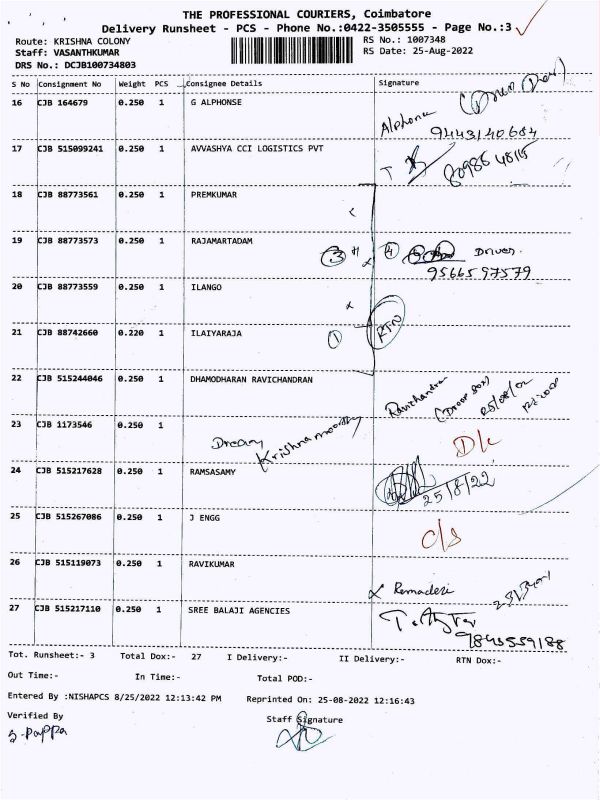 THE PROFESSIONAL COURIERS, Coimbatore
Delivery Runsheet - PCS - Phone No.:0422-3505555 - Page No.:3
Route: KRISHNA COLONY RS No.: 1007348
Staff: VASANTHKUMAR RS Date: 25-Aug-2022
DRS No.: DCJB100734803
S No Consignment No Weight PCS Consignee Details Signature
16 CJB 164679 0.250 1 G ALPHONSE Alphonse
9443140684
17 CJB 515099241 0.250 1 AVVASHYA CCI LOGISTICS PVT
18 CJB 88773561 0.250 1 PREMKUMAR
19 CJB 88773573 0.250 1 RAJAMARTADAM 3 4 Driver
9566597579
20 CJB 88773559 0.250 1 ILANGO
21 CJB 88742660 0.220 1 ILAIYARAJA 1 RTN
22 CJB 515244046 0.250 1 DHAMODHARAN RAVICHANDRAN Ravichandran
25/08/22
23 CJB 1173546 0.250 1 Dream Krishnamoorthy D/c
24 CJB 515217628 0.250 1 RAMSASAMY
25/8/22
25 CJB 515267086 0.250 1 J ENGG C/S
26 CJB 515119073 0.250 1 RAVIKUMAR
Remadevi
27 CJB 515217110 0.250 1 SREE BALAJI AGENCIES
9843559188
Tot. Runsheet:- 3 Total Dox:- 27 I Delivery:- II Delivery:- RTN Dox:-
Out Time:- In Time:- Total POD:-
Entered By :NISHAPCS 8/25/2022 12:13:42 PM Reprinted On: 25-08-2022 12:16:43
Verified By Staff Signature
S. Pappa